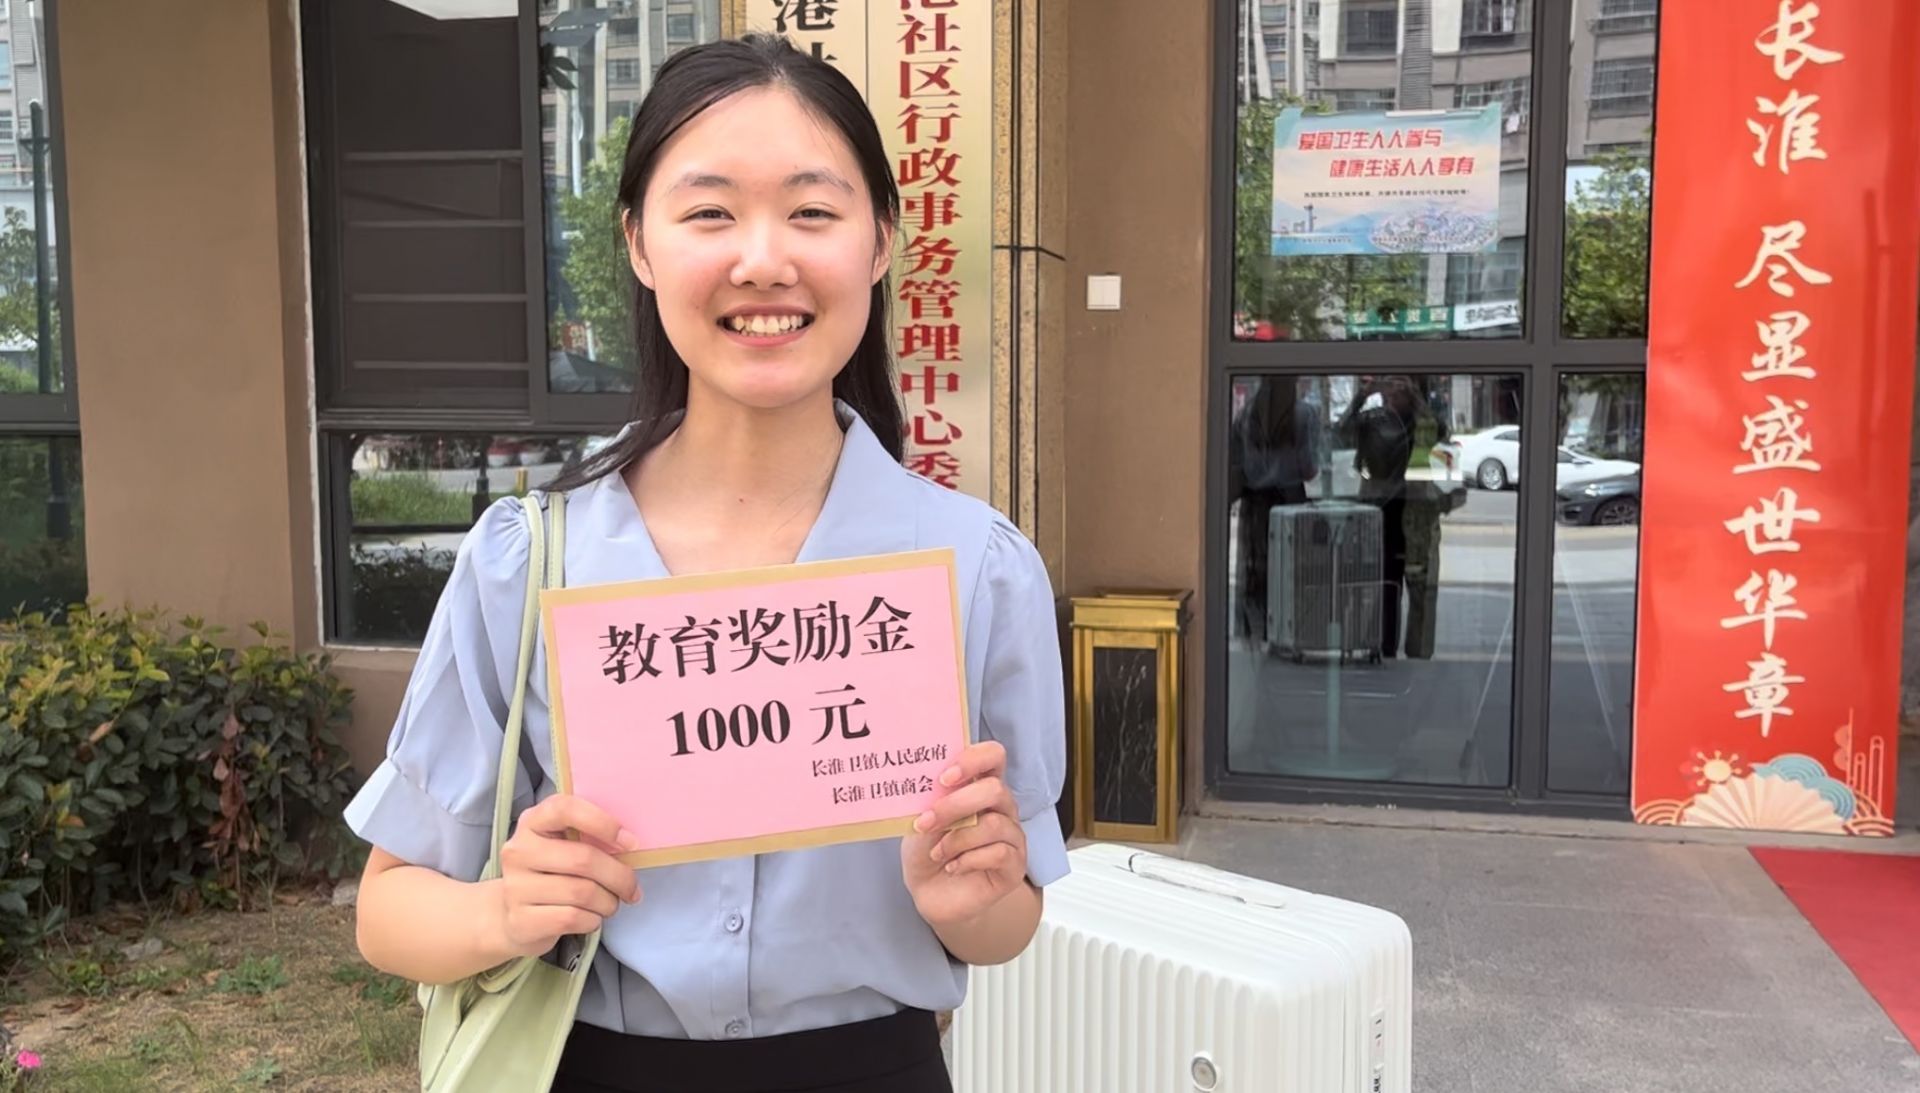 港社
社区行政事务管理中心委
爱国卫生人人参与
健康生活人人享有
教育奖励金
1000 元
长淮卫镇人民政府
长淮卫镇商会
长淮 尽显盛世华章